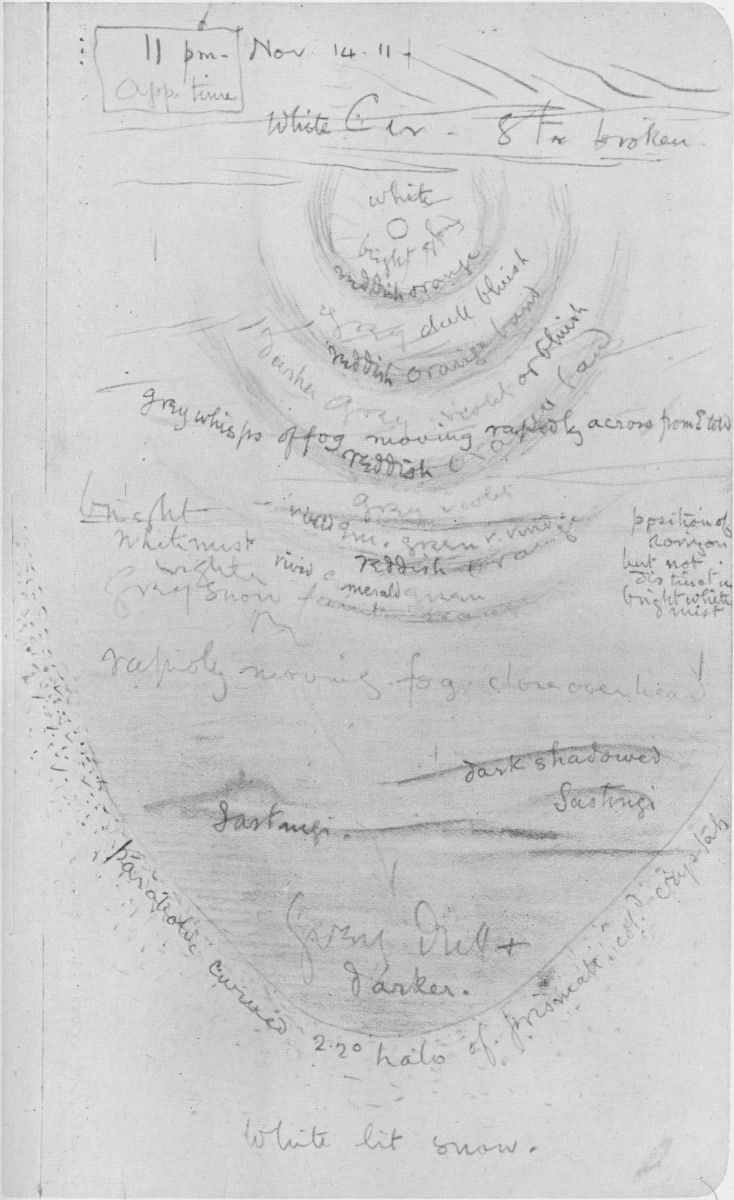 11 pm. Nov. 14. 11
App. time
White Cir. 8 broken
white
bright fog
reddish orange
grey dull bluish
reddish orange band
darker grey violet or bluish
reddish orange band
grey whisps of fog moving rapidly across from E to W
grey violet
bright
white mist
vivid green
reddish orange
vivid emerald green
lighter
grey snow faint
position of
horizon
but not
distinct in
bright white
mist
rapidly moving fog close overhead
dark shadowed
Sastrugi
Sastrugi.
Grey Dull +
darker.
parabolic curved 22° halo of prismatic col'd crystals
White lit snow.